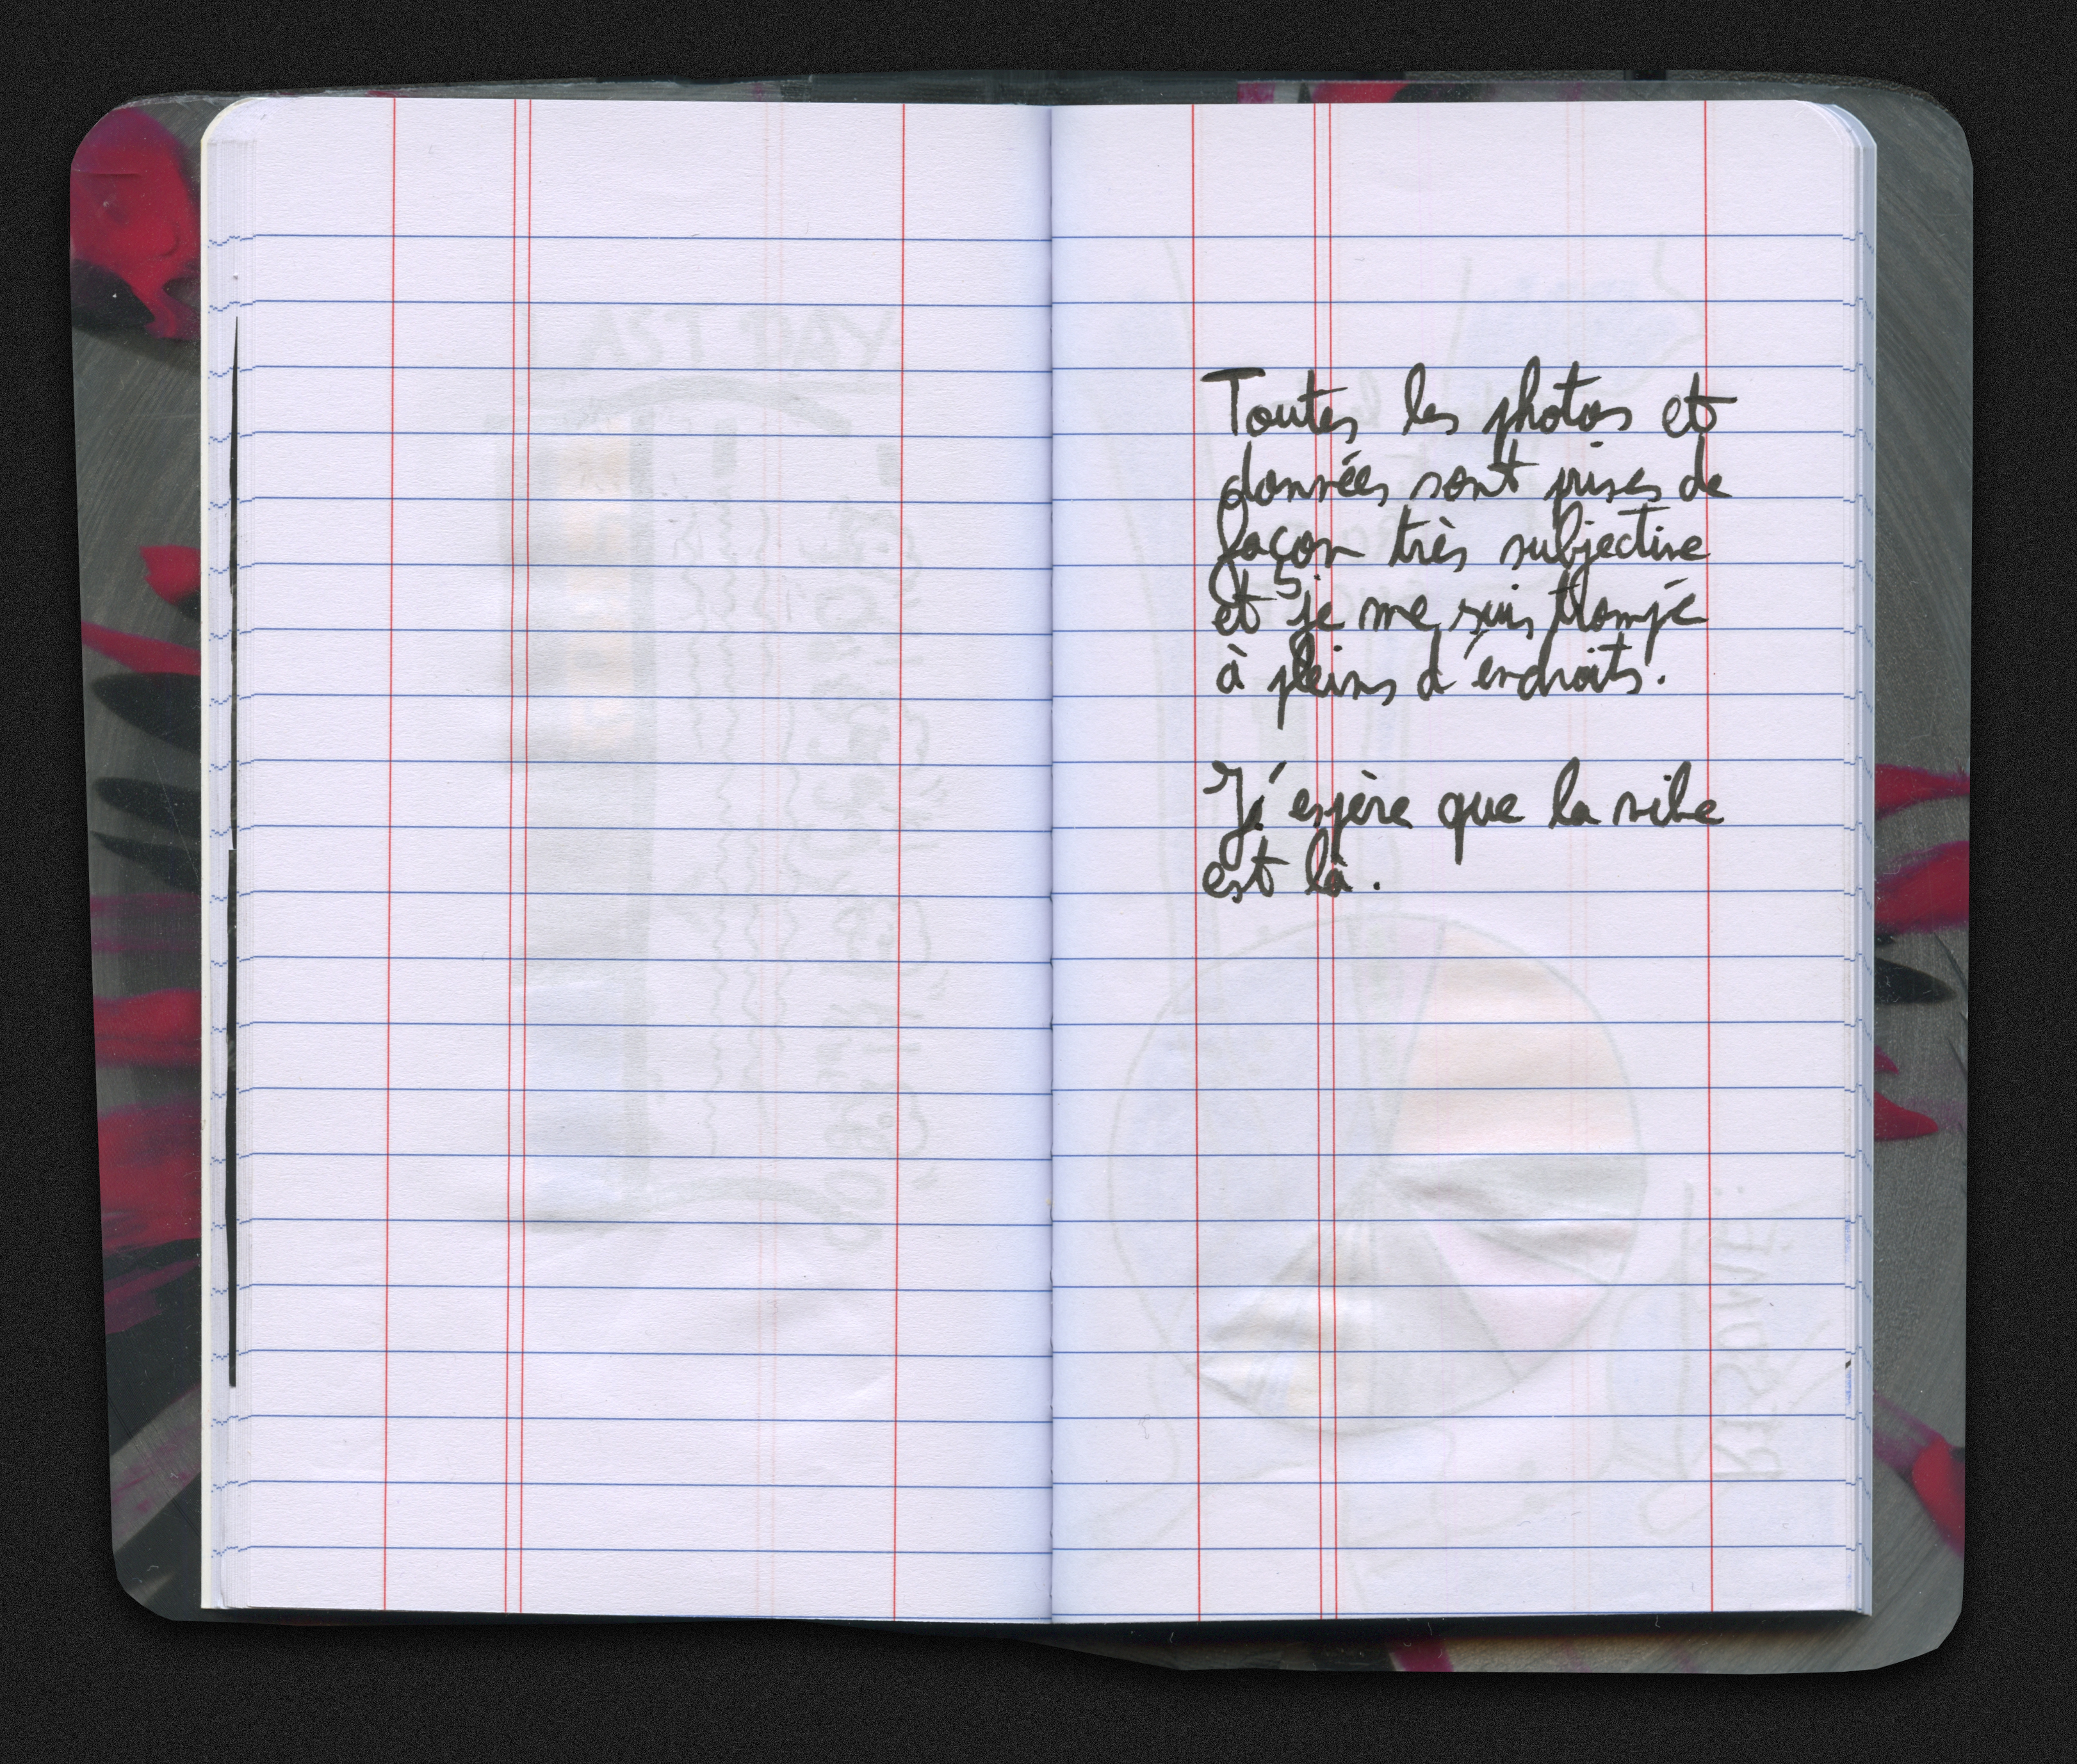 Toutes les photos et
données sont prises de
façon très subjective
et je me suis trompé
à pleins d'endroits.
J'espère que la vibe
est là.